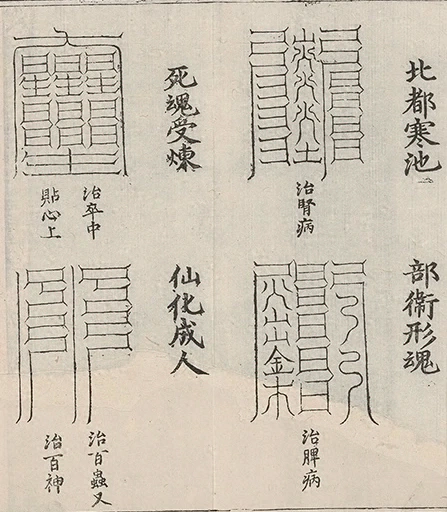 北都寒池
治腎病
部衛形魂
治脾病
死魂受煉
治卒中
貼心上
仙化成人
治百蟲又
治百神